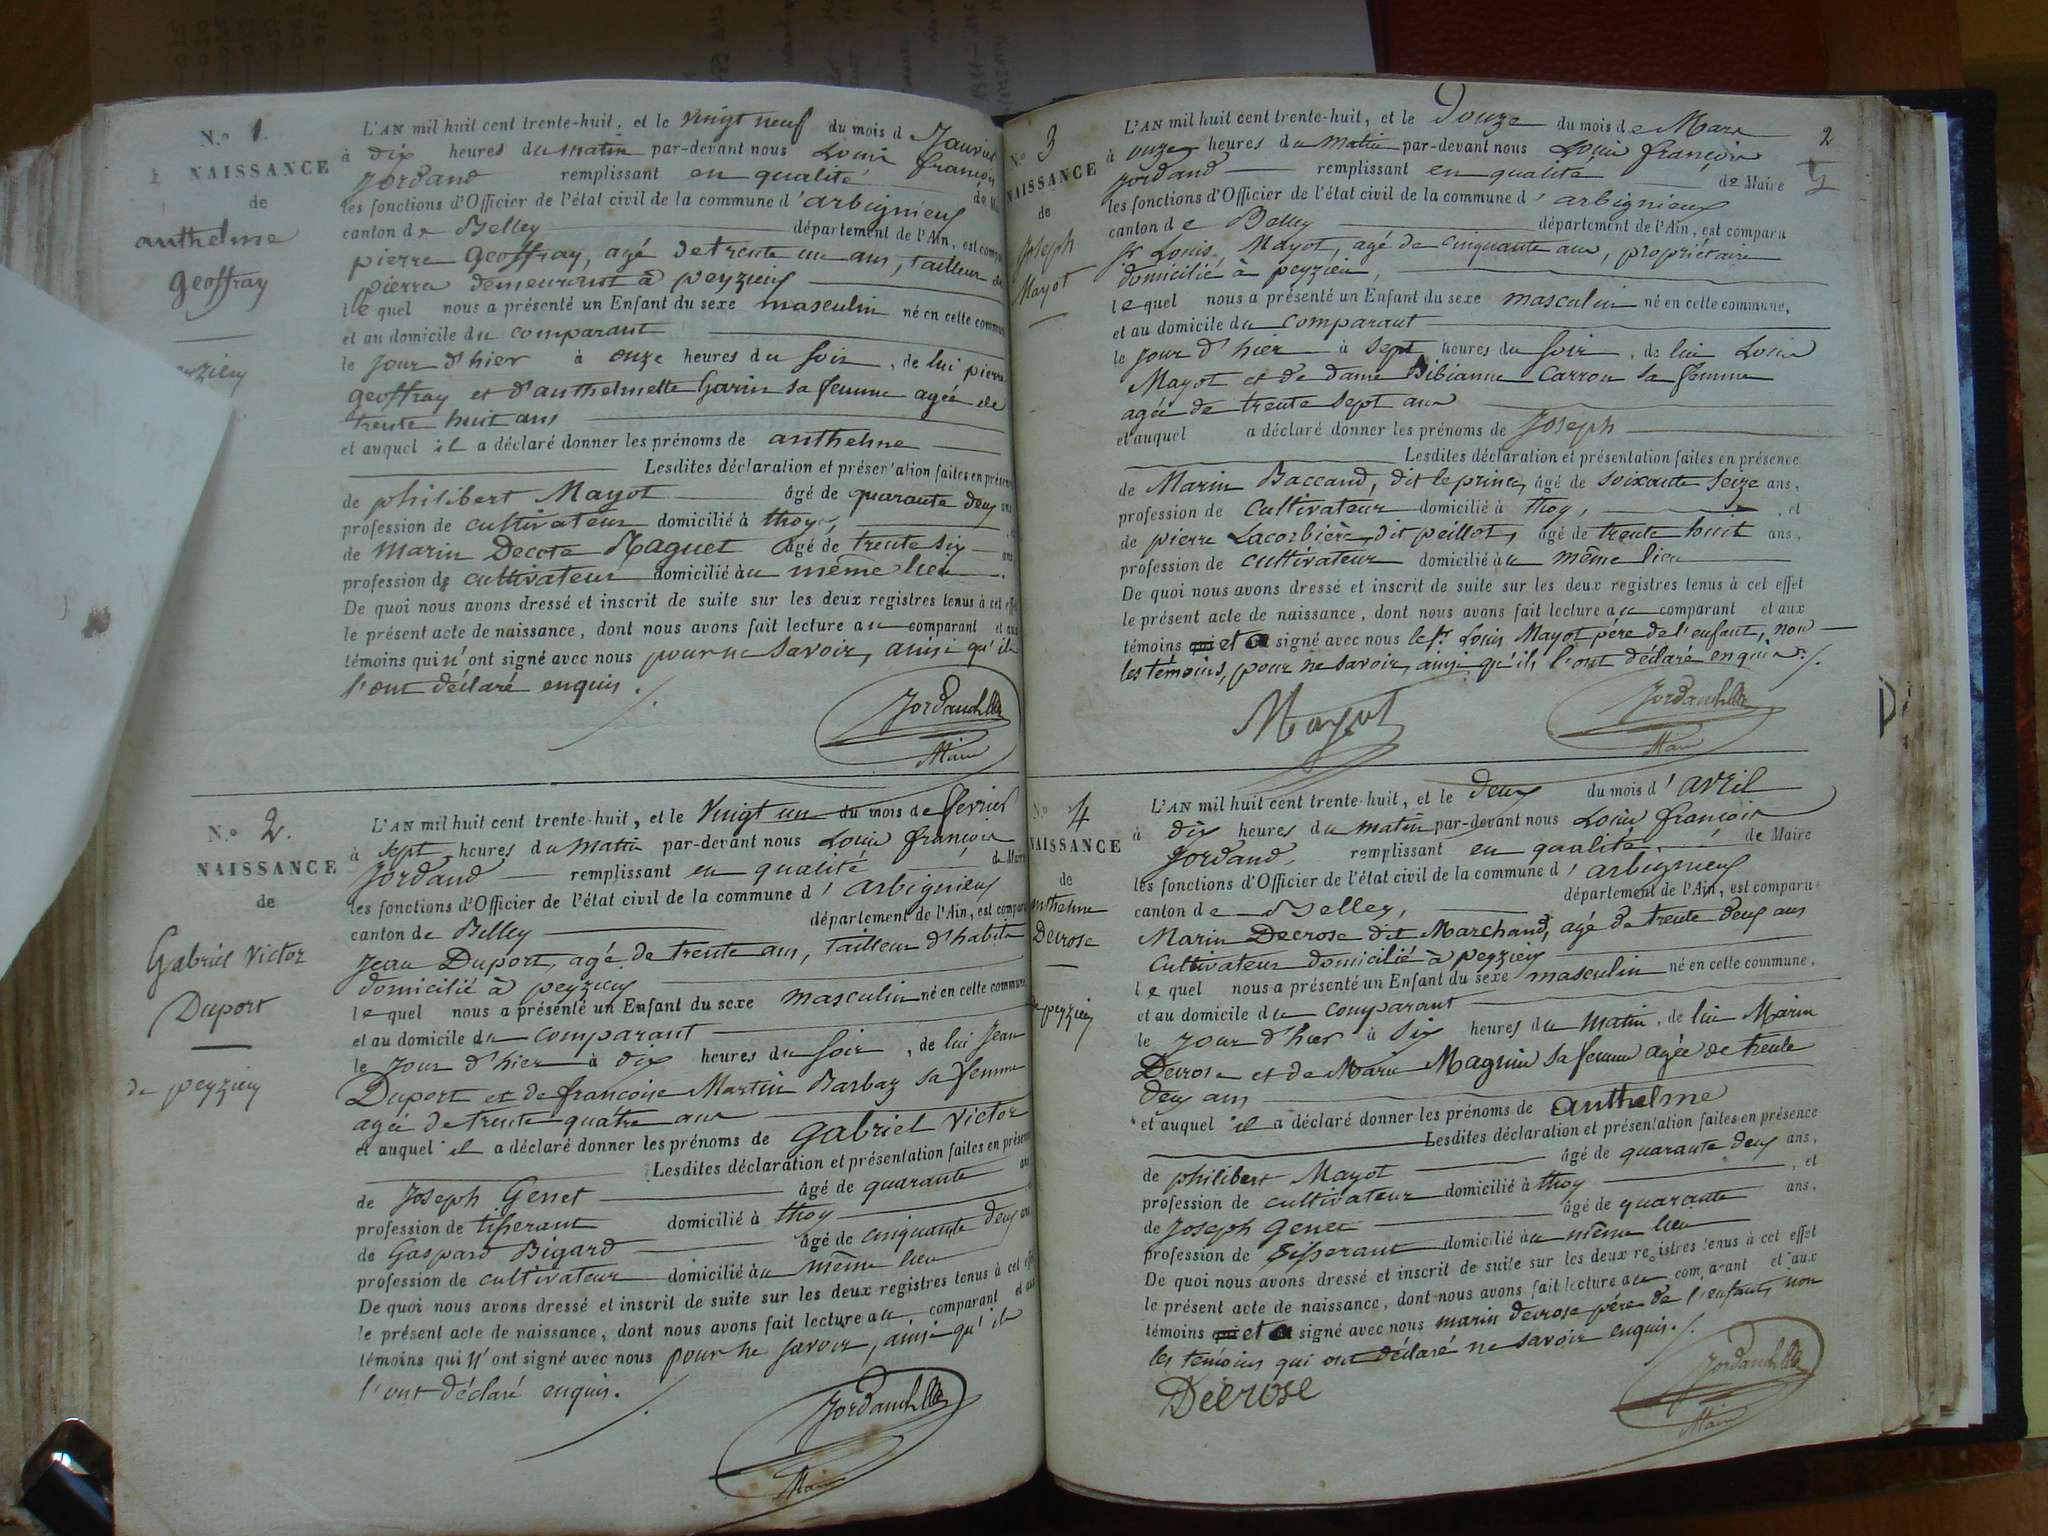 N.o 1.
NAISSANCE
de
anthelme
geoffray
L'AN mil huit cent trente-huit, et le vingt neuf du mois de Janvier
à dix heures du matin par-devant nous Louis françois
Jordand remplissant en qualité de
les fonctions d'Officier de l'état civil de la commune d'arbignieu
canton de Belley département de l'Ain, est
pierre geoffray, agé de trente un ans, tailleur de
pierre demeurant à peyzieu
lequel nous a présenté un Enfant du sexe masculin né en cette
et au domicile du comparant
le jour d'hier à onze heures du soir, de lui pierre
geoffray et d'anthelmette Garin sa femme agée de
trente huit ans
et auquel il a déclaré donner les prénoms de anthelme
Lesdites déclaration et présentation faites en
de philibert Mayot âgé de quarante deux ans
profession de cultivateur domicilié à thoy,
de Marin Decote Naguet âgé de trente six ans
profession de cultivateur domicilié au même lieu.
De quoi nous avons dressé et inscrit de suite sur les deux registres tenus à cet effet
le présent acte de naissance, dont nous avons fait lecture au comparant et aux
témoins qui n'ont signé avec nous pour ne savoir, ainsi qu'ils
l'ont déclaré enquis.
Jordand
Maire
N.o 2.
NAISSANCE
de
Gabriel Victor
Duport
de peyzieu
L'AN mil huit cent trente-huit, et le vingt un du mois de fevrier
à sept heures du matin par-devant nous Louis françois
Jordand remplissant en qualité de Maire
les fonctions d'Officier de l'état civil de la commune d'arbignieu
canton de Belley département de l'Ain, est comparu
Jean Duport, agé de trente ans, tailleur d'habits
domicilié à peyzieu
lequel nous a présenté un Enfant du sexe masculin né en cette commune
et au domicile du comparant
le jour d'hier à dix heures du soir, de lui Jean
Duport et de françoise Martin Barbaz sa femme
agée de trente quatre ans
et auquel il a déclaré donner les prénoms de gabriel Victor
Lesdites déclaration et présentation faites en
de Joseph Genet âgé de quarante ans
profession de tisserant domicilié à thoy
de Gaspard Bigard âgé de cinquante deux ans
profession de cultivateur domicilié au même lieu
De quoi nous avons dressé et inscrit de suite sur les deux registres tenus à cet effet
le présent acte de naissance, dont nous avons fait lecture au comparant et aux
témoins qui n'ont signé avec nous pour ne savoir, ainsi qu'ils
l'ont déclaré enquis.
Jordand
Maire
2
N.o 3
NAISSANCE
de
Joseph
Mayot
L'AN mil huit cent trente-huit, et le douze du mois de Mars
à onze heures du matin par-devant nous Louis françois
Jordand remplissant en qualité de Maire
les fonctions d'Officier de l'état civil de la commune d'arbignieu
canton de Belley département de l'Ain, est comparu
Sr Louis Mayot, agé de cinquante ans, propriétaire
domicilié à peyzieu,
lequel nous a présenté un Enfant du sexe masculin né en cette commune,
et au domicile du comparant
le jour d'hier à sept heures du soir, de lui Louis
Mayot et de dame Bibianne Carron sa femme
agée de trente sept ans
et auquel a déclaré donner les prénoms de Joseph
Lesdites déclaration et présentation faites en présence
de Marin Baccand, dit le prince, âgé de soixante seize ans,
profession de cultivateur domicilié à thoy, et
de pierre Lacorbière, dit peillot, âgé de trente huit ans,
profession de cultivateur domicilié au même lieu
De quoi nous avons dressé et inscrit de suite sur les deux registres tenus à cet effet
le présent acte de naissance, dont nous avons fait lecture au comparant et aux
témoins et a signé avec nous le sr Louis Mayot père de l'enfant, non
les témoins, pour ne savoir, ainsi qu'ils l'ont déclaré enquis.
Mayot
Jordand
Maire
N.o 4
NAISSANCE
de
anthelme
Decrose
de peyzieu
L'AN mil huit cent trente-huit, et le deux du mois d'avril
à dix heures du matin par-devant nous Louis françois
Jordand, remplissant en qualité de Maire
les fonctions d'Officier de l'état civil de la commune d'arbignieu
canton de Belley, département de l'Ain, est comparu
Marin Decrose dit Marchand, agé de trente deux ans
cultivateur domicilié à peyzieu
lequel nous a présenté un Enfant du sexe masculin né en cette commune,
et au domicile du comparant
le jour d'hier à six heures du matin, de lui Marin
Decrose et de Marie Magnin sa femme agée de trente
deux ans
et auquel il a déclaré donner les prénoms de anthelme
Lesdites déclaration et présentation faites en présence
de philibert Mayot âgé de quarante deux ans,
profession de cultivateur domicilié à thoy, et
de Joseph Genet âgé de quarante ans,
profession de tisserant domicilié au même lieu
De quoi nous avons dressé et inscrit de suite sur les deux registres tenus à cet effet
le présent acte de naissance, dont nous avons fait lecture au comparant et aux
témoins et a signé avec nous marin decrose père de l'enfant, non
les témoins qui ont déclaré ne savoir enquis.
Decrose
Jordand
Maire